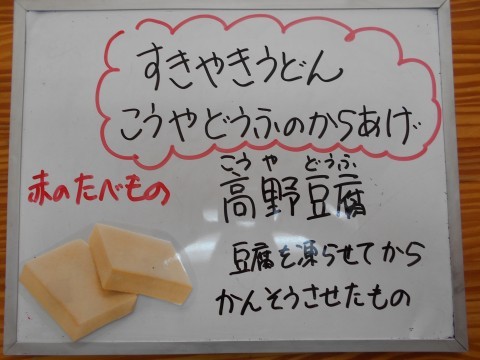 すきやきうどん
こうやどうふのからあげ
赤のたべもの
こうや どうふ
高野豆腐
豆腐を凍らせてから
かんそうさせたもの